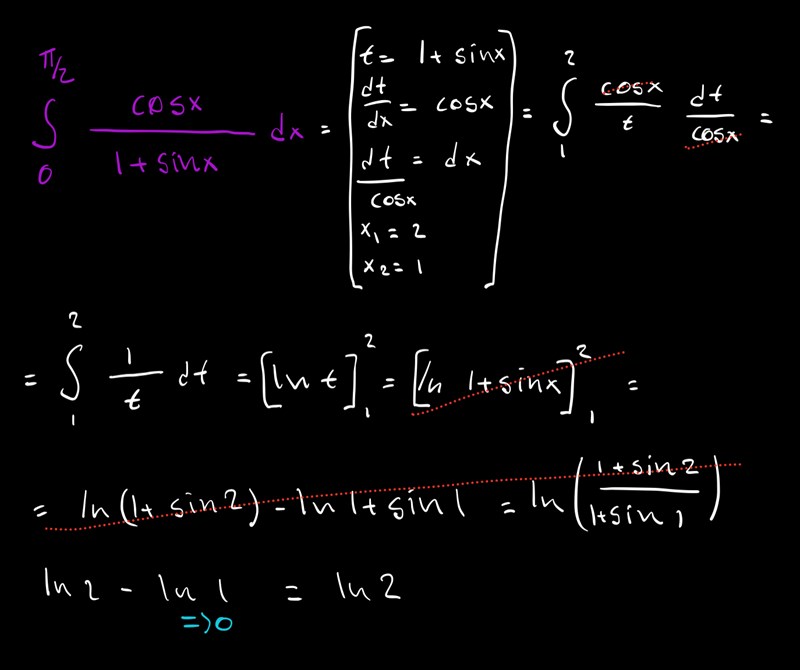 ∫_0^{π/2} cosx / (1 + sinx) dx = [ t = 1 + sinx
dt/dx = cosx
dt/cosx = dx
x₁ = 2
x₂ = 1 ] = ∫_1^2 cosx/t dt/cosx =
= ∫_1^2 1/t dt = [ln t]_1^2 = [ln 1+sinx]_1^2 =
= ln(1+ sin2) - ln 1+ sin1 = ln((1+sin2)/(1+sin1))
ln 2 - ln 1 = ln 2
=>0